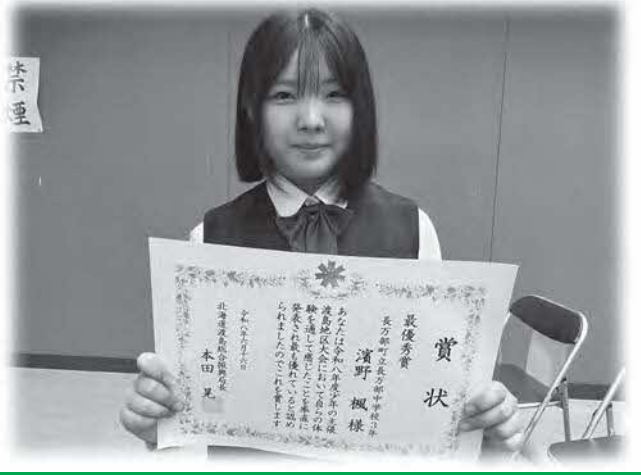 禁煙
賞状
最優秀賞
長万部町立長万部中学校3年
濱野楓様
あなたは令和八年度少年の主張
渡島地区大会において自らの体
験を通して感じたことを率直に
発表され最も優れていると認め
られましたのでこれを賞します
令和八年六月十六日
北海道渡島総合振興局長
本田晃